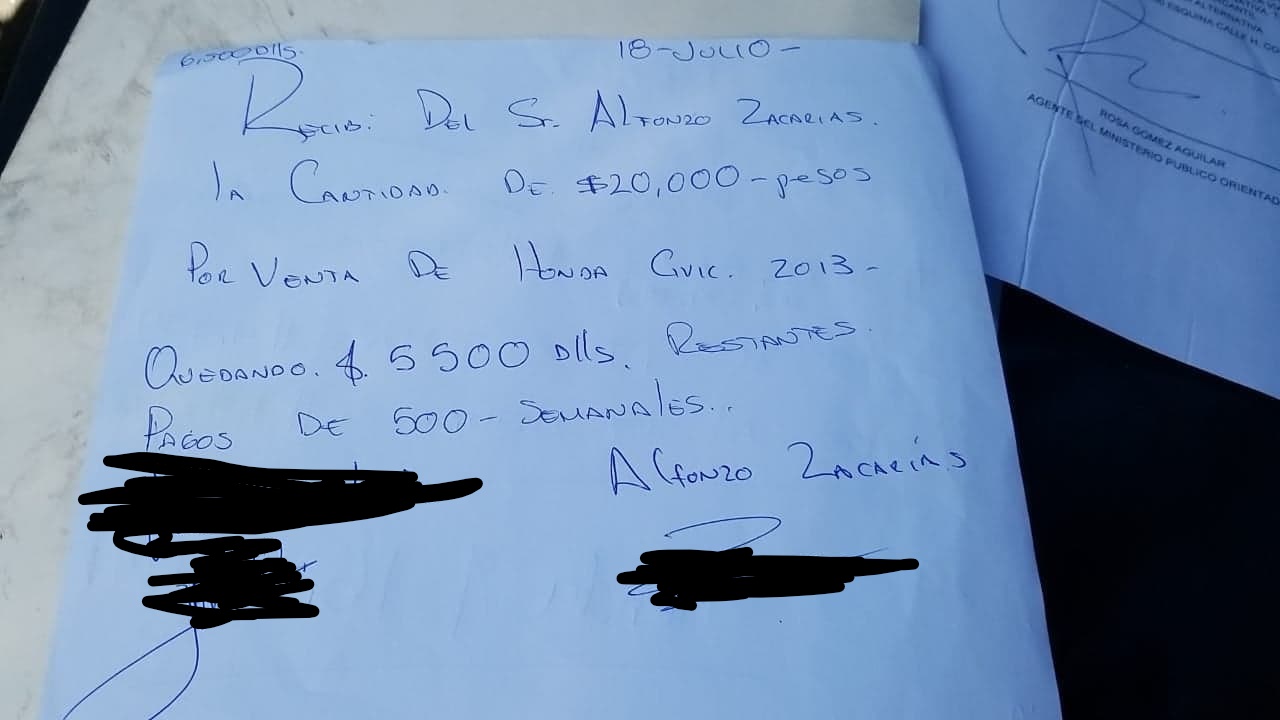 6,500 Dlls.
18-JULIO-
RECIBI: DEL Sr. ALFONZO ZACARIAS.
lA CANTIDAD. DE $20,000-pesos
POR VENTA DE HONDA CIVIC. 2013-
QUEDANDO. $. 5500 Dlls. RESTANTES.
PAGOS DE 500- SEMANAlES..
AlfONZO ZACARÍAS
ESQUINA CALLE H. CO
ROSA GOMEZ AGUILAR
AGENTE DEL MINISTERIO PUBLICO ORIENTAD